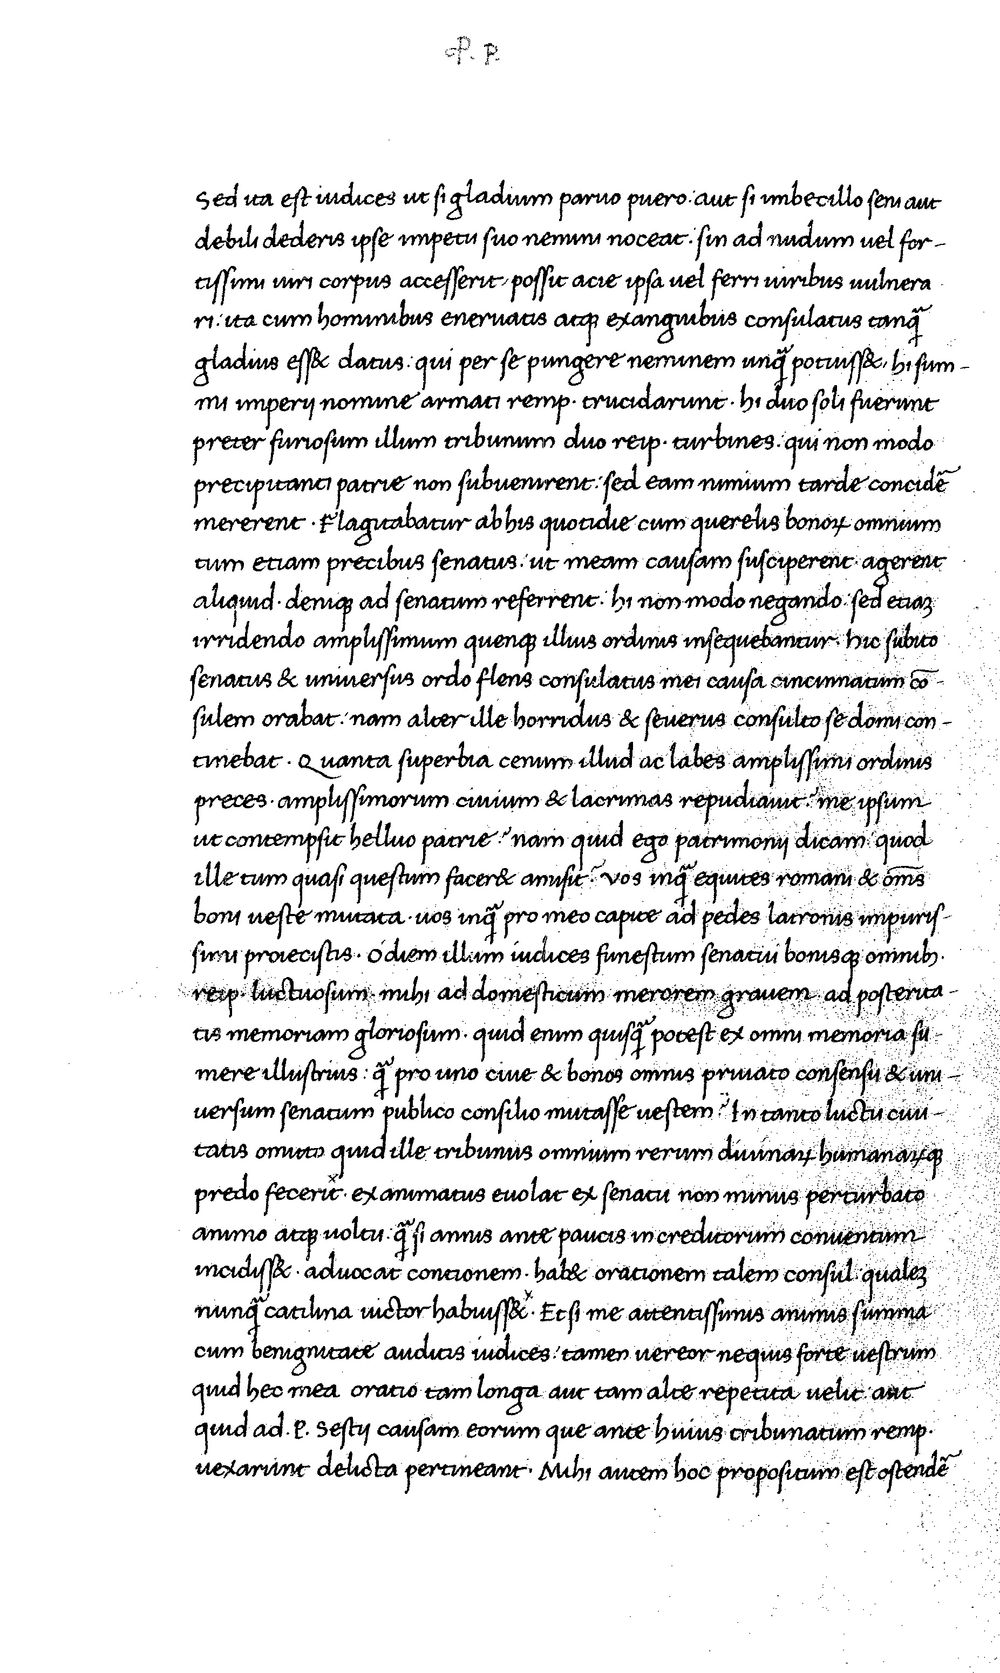 P. P.
Sed ita est iudices ut si gladium paruo puero: aut si imbecillo seni aut
debili dederis ipse impetu suo nemini noceat: sin ad nudum uel for-
tissimi uiri corpus accesserit, possit acie ipsa uel ferri uiribus uulnera
ri: ita cum hominibus eneruatis atqꝫ exanguibus consulatus tanqᷓ
gladius ess& datus: qui per se pungere neminem unqᷓ potuiss&, hi sum-
mi imperij nomine armati remp. trucidarunt. hi duo soli fuerunt
preter furiosum illum tribunum duo reip. turbines. qui non modo
precipitanti patrie non subuenirent: sed eam nimium tarde concidē
mererent. Flagitabatur ab his quotidie cum querelis bonoꝝ omnium
tum etiam precibus senatus: ut meam causam susciperent. agerent
aliquid. deniqꝫ ad senatum referrent. hi non modo negando: sed etiaꝫ
irridendo amplissimum quenqꝫ illius ordinis insequebantur. hic subito
senatus & uniuersus ordo flens consulatus mei causa cincinnatum cō-
sulem orabat: nam alter ille horridus & seuerus consulto se domi con-
tinebat. Quanta superbia cenum illud ac labes amplissimi ordinis
preces. amplissimorum ciuium & lacrimas repudiauit? me ipsum
ut contempsit helluo patrie? nam quid ego patrimonij dicam: quod
ille tum quasi questum facer& amisit? vos inqᷓ equites romani & om̄s
boni ueste mutata. uos inqᷓ pro meo capite ad pedes latronis impuris-
simi proiecistis. O diem illum iudices funestum senatui bonisqꝫ omnibꝫ.
reip. luctuosum. mihi ad domesticum merorem grauem. ad posterita-
tis memoriam gloriosum. quid enim quisqᷓ potest ex omni memoria su-
mere illustrius: qᷓ pro uno ciue & bonos omnis priuato consensu & uni-
uersum senatum publico consilio mutasse uestem? In tanto luctu ciui-
tatis omnito quid ille tribunus omnium rerum diuinaꝝ humanaꝝqꝫ
predo fecerit. exanimatus euolat ex senatu non minus perturbato
animo atqꝫ uoltu: qᷓ si annis ante paucis in creditorum conuentum
incidiss&. aduocat contionem. hab& orationem talem consul: qualeꝫ
nunqᷓ catilina uictor habuiss&. Etsi me attentissimis animis summa
cum benignitate auditis iudices: tamen uereor nequis forte uestrum
quid hec mea oratio tam longa aut tam alte repetita uelit: aut
quid ad .P. Sestij causam eorum que ante huius tribunatum remp.
uexarunt delicta pertineant. Mihi autem hoc propositum est ostendē